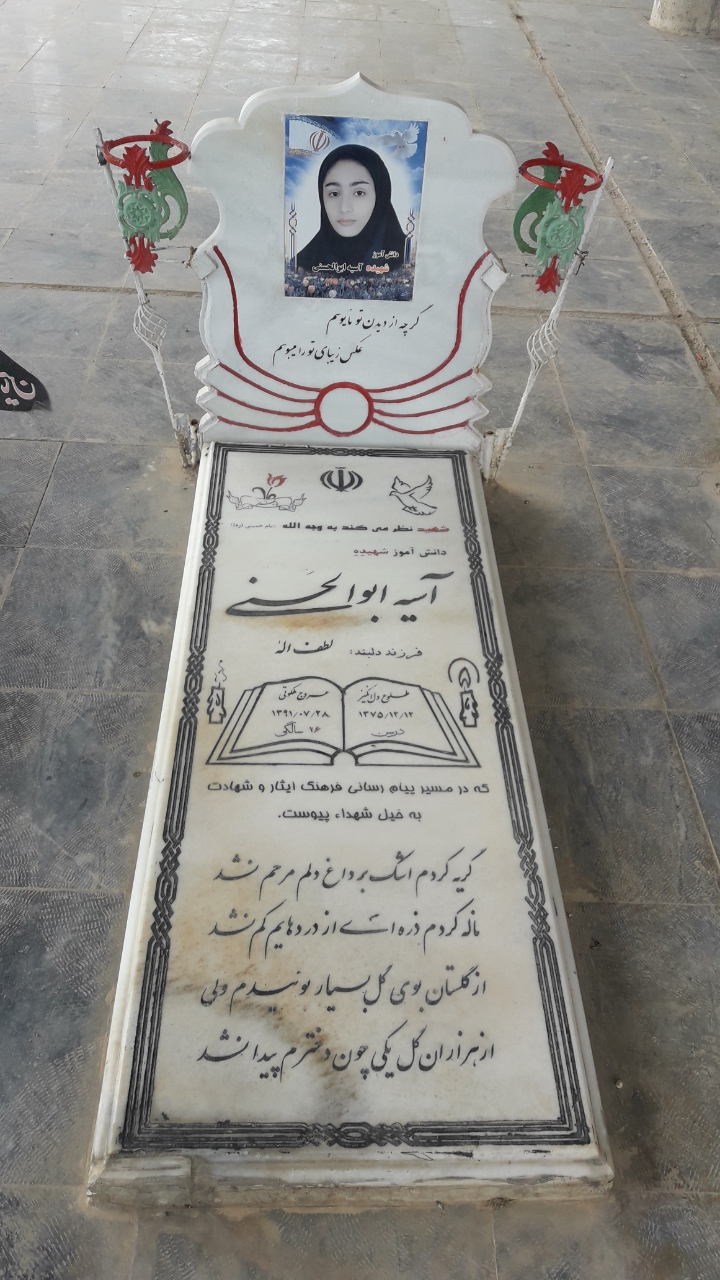 دانش آموز
شهیده آسیه ابوالحسنی
گرچه از دیدن تو مایوسم
عکس زیبای تو را میبوسم
شهید نظر می کند به وجه الله
دانش آموز شهیده
آسیه ابوالحسنی
فرزند دلبند: لطف اله
طلوع دل انگیز
۱۳۷۵/۱۲/۱۲
در سن
عروج ملکوتی
۱۳۹۱/۰۷/۲۸
۱۶ سالگی
که در مسیر پیام رسانی فرهنگ ایثار و شهادت
به خیل شهداء پیوست.
گریه کردم اشک بر داغ دلم مرحم نشد
ناله کردم ذره ای از دردهایم کم نشد
از گلستان بوی گل بسیار بوئیدم ولی
از هزاران گل یکی چون دخترم پیدا نشد